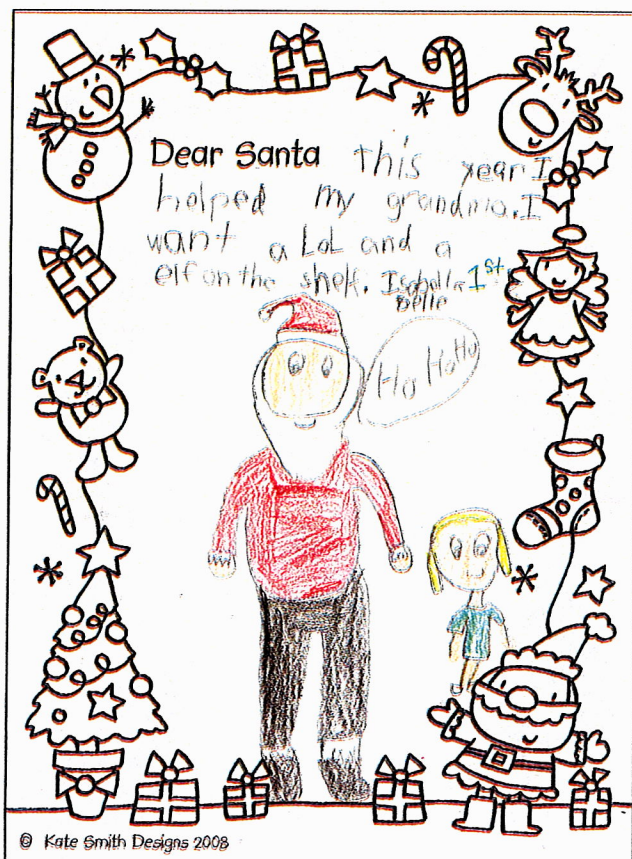 Dear Santa this year I
helped my grandma. I
want a LoL and a
elf on the shelf. Isabella 1st
Belle
Ho HoHo
© Kate Smith Designs 2008